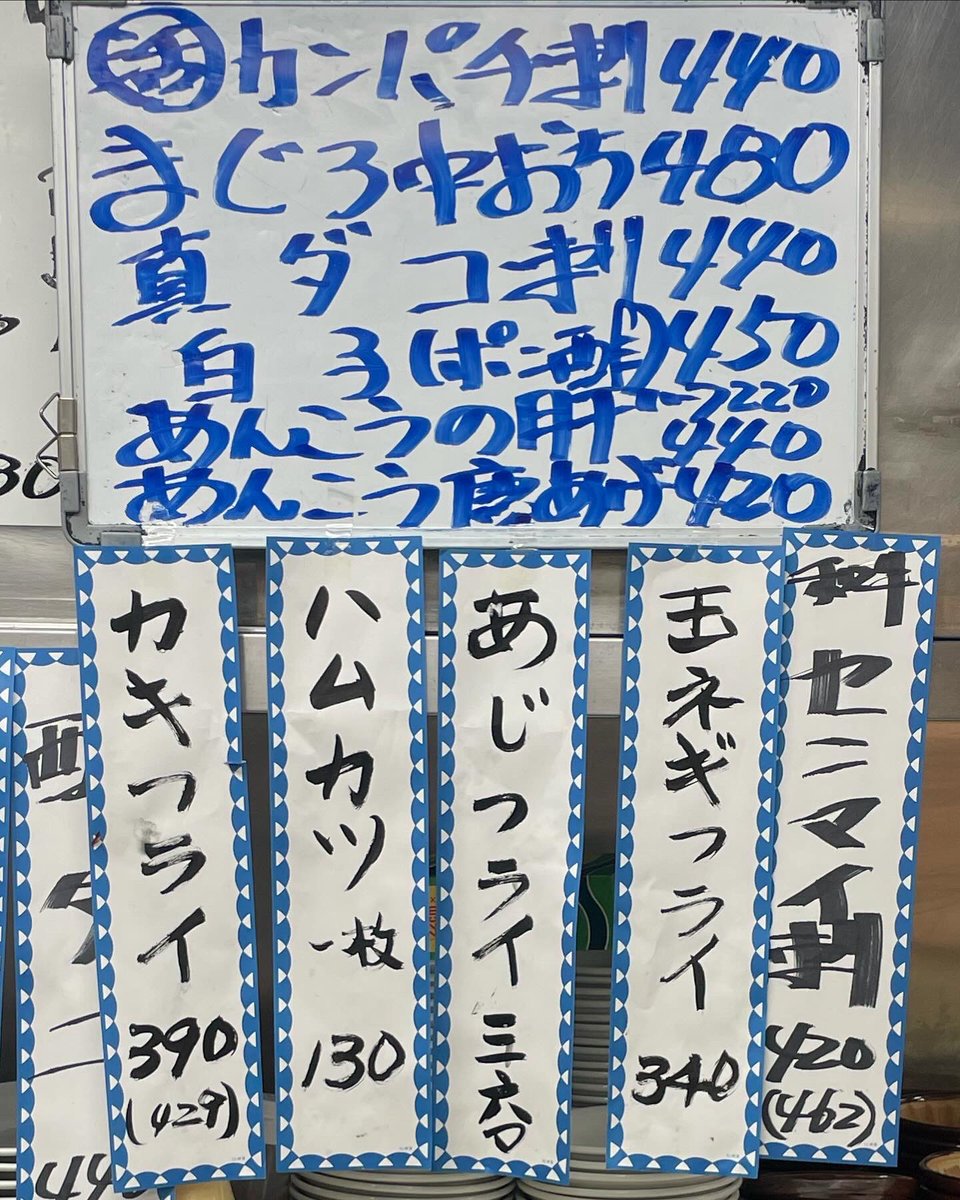 活カンパチ刺 440
まぐろ中おち 480
真ダコ刺 440
白子ぽン酢 450
あんこうの肝 ハーフ220 440
あんこう唐あげ 420
センマイ刺
420
(462)
玉ネギフライ
340
あじフライ 三六〇
ハムカツ 一枚
130
カキフライ
390
(429)